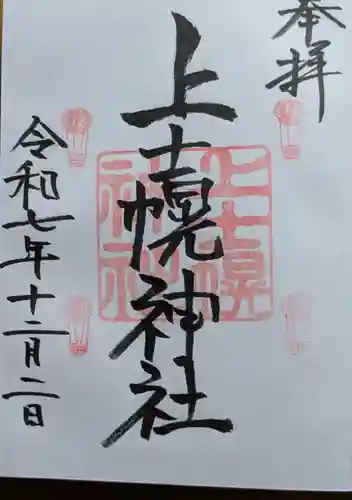 奉拝
上士幌神社
上士幌
神社
令和七年十二月二日